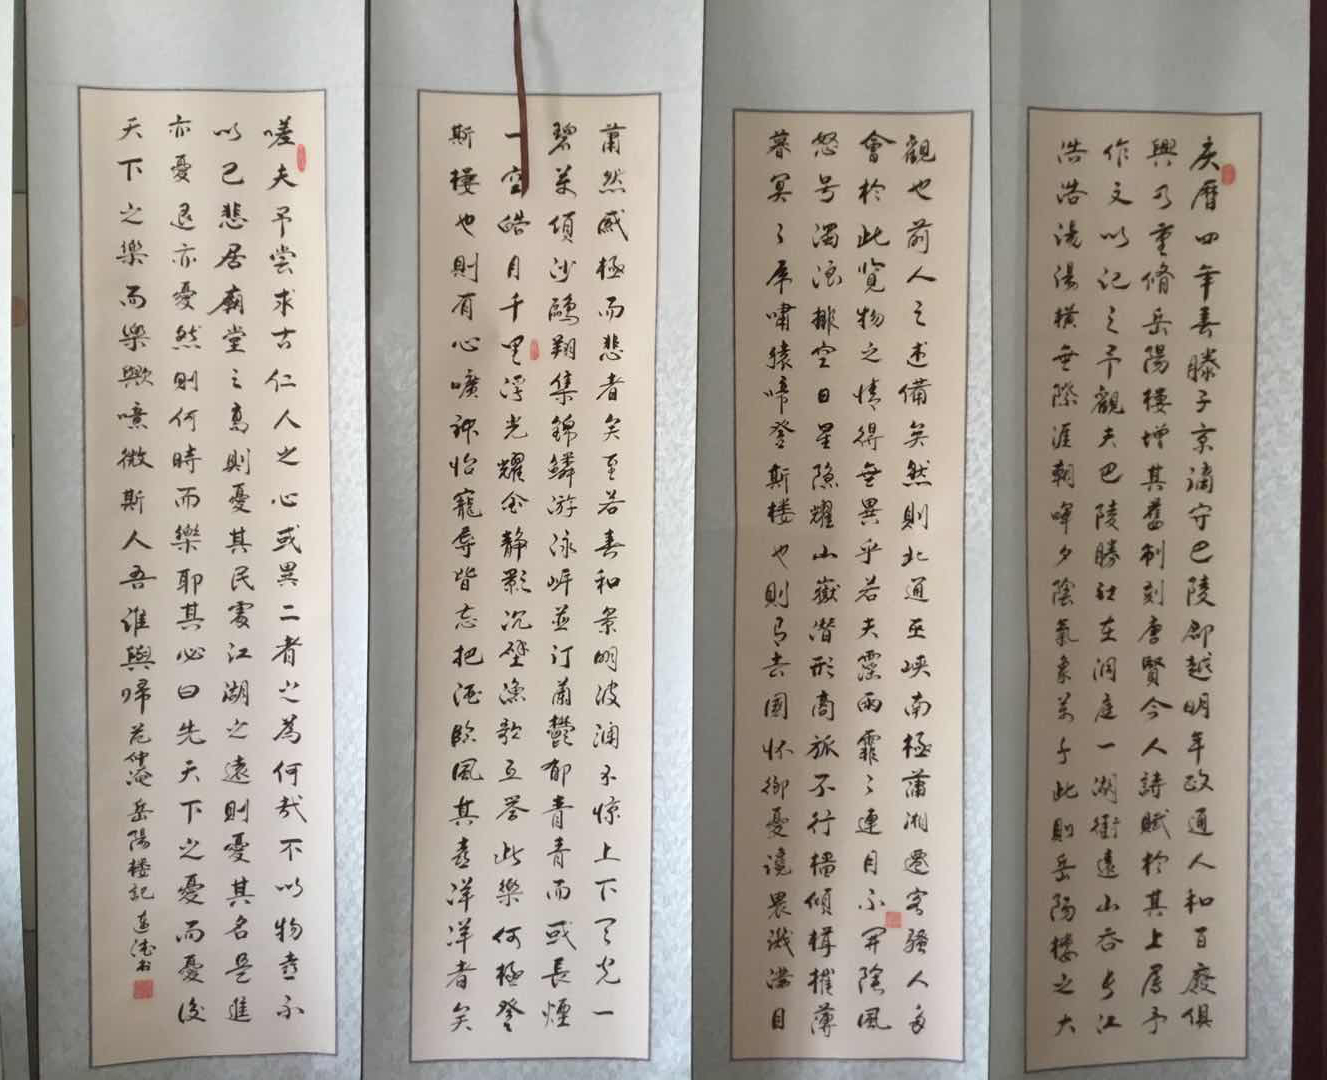 庆曆四年春滕子京谪守巴陵郡越明年政通人和百廢俱
興乃重脩岳陽楼增其舊制刻唐賢今人詩賦於其上属予
作文以记之予觀夫巴陵勝狀在洞庭一湖銜遠山吞长江
浩浩湯湯横無際涯朝暉夕陰氣象万千此則岳陽楼之大
觀也前人之述備矣然則北通巫峡南極瀟湘遷客骚人多
會於此览物之情得無異乎若夫霪雨霏〻連月不開陰風
怒号濁浪排空日星隐耀山嶽潛形商旅不行檣傾楫摧薄
暮冥〻虎啸猿啼登斯楼也則有去國怀鄉憂讒畏譏满目
萧然感極而悲者矣至若春和景明波澜不惊上下天光一
碧万頃沙鷗翔集錦鱗游泳岸芷汀蘭鬱郁青青而或長煙
一空皓月千里浮光耀金静影沉壁漁歌互答此樂何極登
斯楼也則有心曠神怡寵辱皆忘把酒臨風其喜洋洋者矣
嗟夫予尝求古仁人之心或異二者之為何哉不以物喜不
以己悲居廟堂之高則憂其民處江湖之遠則憂其君是進
亦憂退亦憂然則何時而樂耶其必曰先天下之憂而憂後
天下之樂而樂歟噫微斯人吾谁與歸范仲淹岳陽楼記